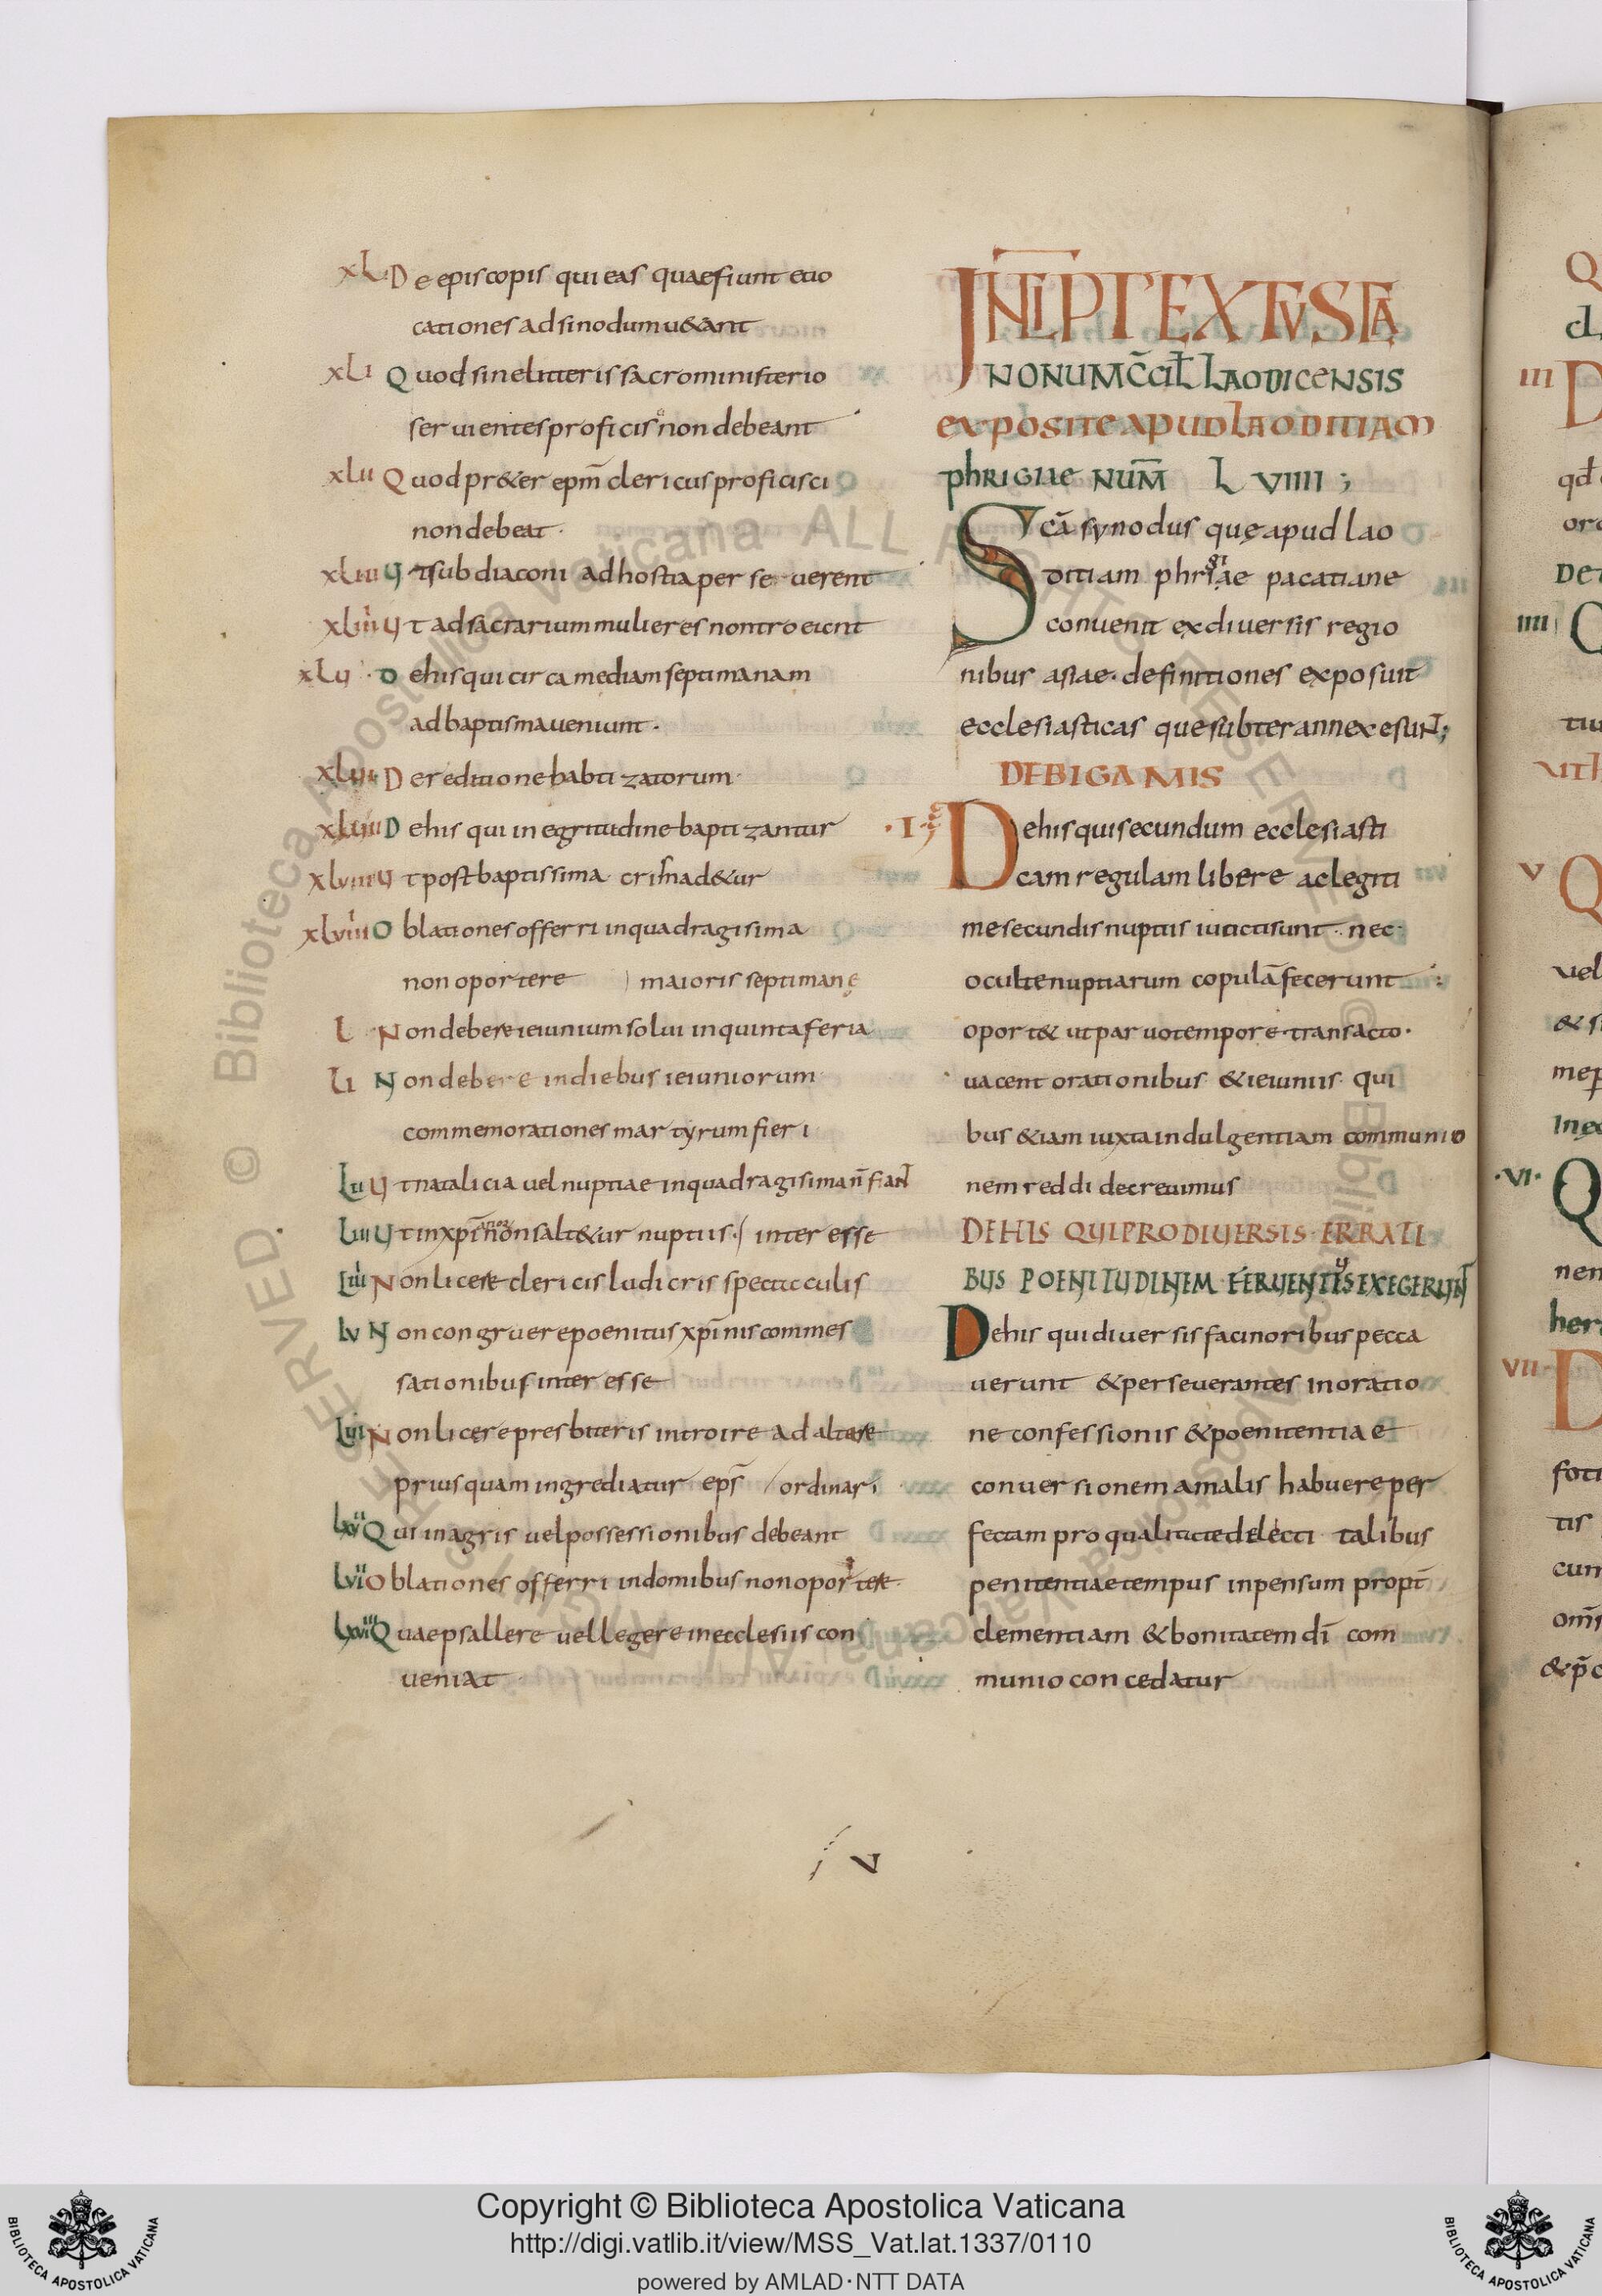 xL D e episcopis qui eas quae fiunt euo
cationes ad sinodum u&ant
xLI Quod sine litteris sacro ministerio
seruientes proficisci non debeant
xLII Quod pr&er epm̄ clericus proficisci
non debeat.
xLIII Ut subdiaconi ad hostia perseuerent
xLIIII Ut ad sacrarium mulieres n
xLV De his qui circa mediam septimanam
ad baptisma ueniunt.
De reditione babtizatorum
De his qui in egritudine baptizantur
xLVIII Ut post baptissima crismad&ur
xLVIIII Oblationes offerri in quadragisima
non oportere maioris septimanę
L Non debere ieiunium solui in quinta feria
LI Non debere in diebus ieiuniorum
commemorationes martyrum fieri
LII Ut natalicia uel nuptiae in quadragisima n̄ fiant
LIII Ut in xp̄i non salt&ur nuptiis interesse
LIIII Non licere clericis ludicris spectaculis
LV Non congruere poenitus xp̄inis commes
sationibus interesse
LVI Non licere presbiteris introire ad altare
priusquam ingrediatur ep̄s / ordinari
Qui in agris uel possessionibus debeant
Oblationes offerri in domibus non oportere.
Quae psallere uel legere in ecclesiis con
ueniat
INCIPT TEXTUS
NONUM CC̄IL LAODICENSIS
EXPOSITE APUD LAODITIAM
PHRIGIAE NUM̄ LVIIII;
Scā synodus quę apud lao
ditiam phrigiae pacatiane
conuenit ex diuersis regio
nibus asiae. definitiones exposuit
ecclesiasticas que subter annexe sunt;
DE BIGAMIS
.I. De his qui secundum ecclesiasti
cam regulam libere ac legiti
me secundis nuptiis iuncti sunt. nec
oculte nuptiarum copulā fecerunt
oport& ut paruo tempore transacto.
uacent orationibus & ieiuniis qui
bus &iam iuxta indulgentiam communio
nem reddi decreuimus
DE HIS QUI PRO DIUERSIS ERRATI
BUS POENITUDINEM FERUENTIUS EXEGERUNT
De his qui diuersis facinoribus pecca
uerunt & perseuerantes in oratio
ne confessionis & poenitentiae
conuersionem a malis habuere per
fectam pro qualitate delecti talibus
penitentiae tempus inpensum propt̄
clementiam & bonitatem dī com
munio concedatur
V
Copyright © Biblioteca Apostolica Vaticana
http://digi.vatlib.it/view/MSS_Vat.lat.1337/0110
powered by AMLAD·NTT DATA
BIBLIOTECA APOSTOLICA VATICANA
BIBLIOTECA APOSTOLICA VATICANA